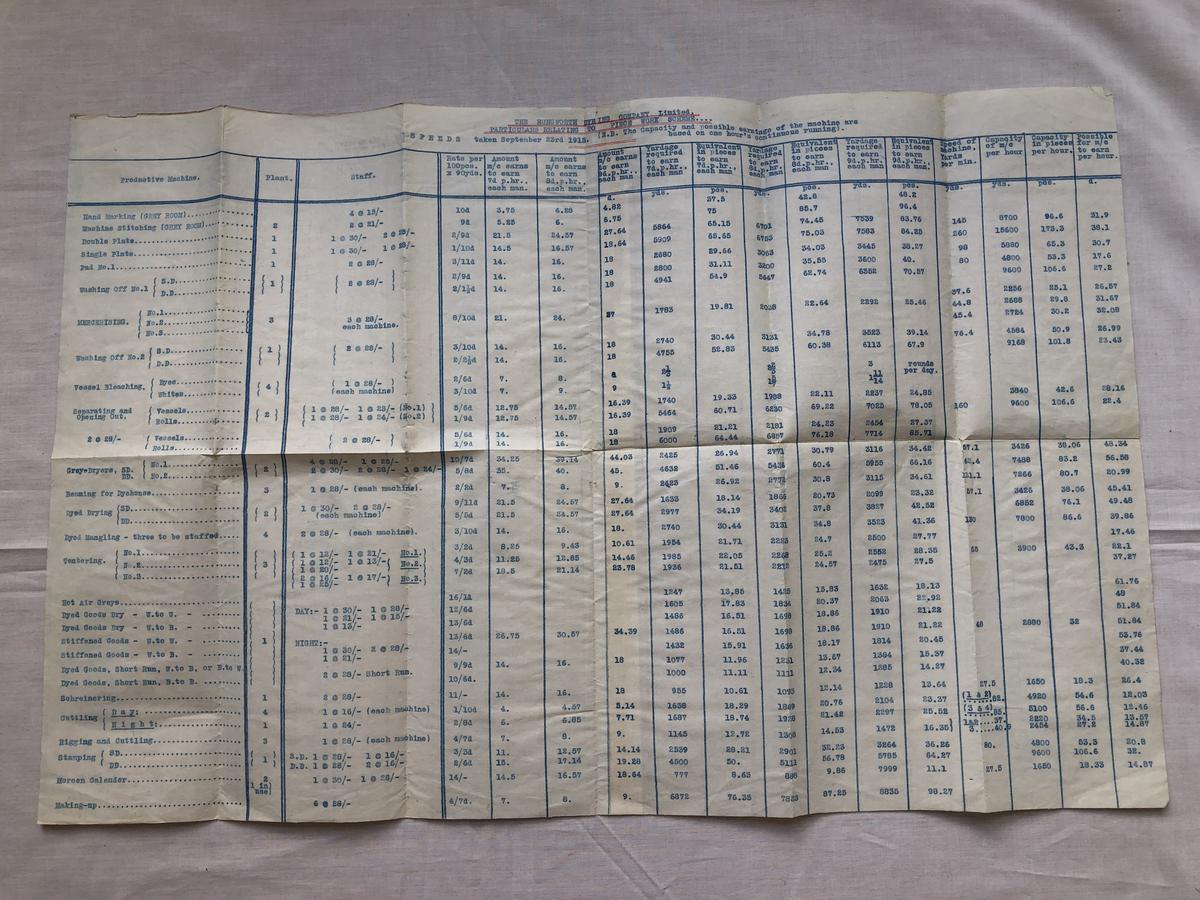 THE HUNSWORTH DYEING COMPANY Limited.
PARTICULARS RELATING TO PIECE WORK SCHEME....
SPEEDS taken September 23rd 1915. (N.B. The Capacity and possible earnings of the machine are
based on one hour's continuous running).
Productive Machine. Plant. Staff. Rate per 100pcs. x 90yds. Amount m/c earns to earn 7d.p.hr., each man. Amount m/c earns to earn 8d.p.hr., each man. Amount m/c earns to earn 9d.p.hr., each man Yardage required to earn 7d.p.hr., each man Equivalent in pieces to earn 7d.p.hr., each man. Yardage required to earn 8d.p.hr., each man Equivalent in pieces to earn 8d.p.hr., each man. Yardage required to earn 9d.p.hr., each man Equivalent in pieces to earn 9d.p.hr., each man. Speed of machine. Yards per min. Capacity of m/c per hour Capacity in pieces per hour. Possible for m/c to earn per hour.
d. yds. pos. yds. pos. yds. pos. yds. yds. pos. d.
Hand Marking (GREY ROOM) 4 @ 15/- 10d 3.75 4.28 4.82 37.5 42.8 48.2
Machine Stitching (GREY ROOM) 2 2 @ 21/- 9d 5.25 6. 6.75 75 85.7 96.4
Double Plate 1 1 @ 30/- 2 @ 28/- 2/9d 21.5 24.57 27.64 5864 65.15 6701 74.45 7539 83.76 145 8700 96.6 31.9
Single Plate 1 1 @ 30/- 1 @ 28/- 1/10d 14.5 16.57 18.64 5909 65.65 6753 75.03 7583 84.25 260 15600 173.3 38.1
Pad No.1 1 2 @ 28/- 3/11d 14. 16. 18 2680 29.66 3063 34.03 3445 38.27 98 5880 65.3 30.7
Washing Off No.1 { S.D. { 1 } { 2 @ 28/- } 2/9d 14. 16. 18 2800 31.11 3200 35.55 3600 40. 80 4800 53.3 17.6
D.D. 2/1½d 14. 16. 18 4941 54.9 5447 62.74 6352 70.57 9600 106.6 27.2
MERCERISING. { No.1 37.6 2256 25.1 26.57
No.2 3 3 @ 28/- each machine. 8/10d 21. 24. 27 1783 19.81 2038 22.64 2292 25.46 44.8 2688 29.8 31.67
No.3 45.4 2724 30.2 32.08
Washing Off No.2 { S.D. { 1 } { 2 @ 28/- } 3/10d 14. 16. 18 2740 30.44 3131 34.78 3523 39.14 76.4 4584 50.9 26.99
D.D. 2/2½d 14. 16. 18 4755 52.83 5435 60.38 6113 67.9 9168 101.8 23.43
rounds per day.
Vessel Bleaching. { Dyed { 4 } { 1 @ 28/- } 2/6d 7. 8. 3
Whites (each machine) 3/10d 7. 9. 9 1740 19.33 1988 22.11 2237 24.85 3840 42.6 28.16
Separating and Opening Out. { Vessels { 2 } { 1 @ 28/- 1 @ 23/- (No.1) } 5/6d 12.75 14.57 16.39
Rolls { 1 @ 28/- 1 @ 24/- (No.2) } 1/9d 12.75 14.57 16.39 5464 60.71 6230 69.22 7025 78.05 160 9600 106.6 22.4
2 @ 28/- { Vessels { 2 @ 28/- } 5/6d 14. 16. 18 1909 21.21 2181 24.23 2454 27.37
Rolls 1/9d 14. 16. 18 6000 64.44 6857 76.18 7714 85.71
Grey Dryers, SD. { No.1 { 2 } 4 @ 28/- 1 @ 25/- 10/7d 34.25 39.14 44.03 2425 26.94 2771 30.79 3116 34.42 57.1 3426 38.06 48.34
DD. { No.2 2 @ 30/- 2 @ 28/- 1 @ 24/- 5/8d 35. 40. 45. 4632 51.46 60.4 5955 66.16 7488 83.2 56.58
Beaming for Dyehouse 3 1 @ 28/- (each machine). 2/2d 7. 8. 9. 26.92 30.8 3115 34.61 121.1 7266 80.7 20.99
Dyed Drying { SD { 2 } { 1 @ 30/- 2 @ 28/- } 9/11d 21.5 24.57 27.64 1633 18.14 1866 20.73 2099 23.32 57.1 3426 38.06 45.41
DD (each machine) 5/5d 21.5 24.57 27.64 2977 34.19 3402 37.8 3827 42.52 6852 76.1 49.48
Dyed Mangling - three to be staffed. 4 2 @ 28/- (each machine). 3/10d 14. 16. 18. 2740 30.44 3131 34.8 3523 41.36 130 7800 86.6 39.86
Tentering. { No.1 1 @ 12/- 1 @ 21/- No.1. 3/2d 8.25 9.43 10.61 1954 21.71 2223 24.7 2500 27.77 17.46
No.2 3 1 @ 12/- 1 @ 13/- No.2. 4/3d 11.25 12.85 14.46 1985 22.05 2268 25.2 2552 28.35 65 3900 43.3 22.1
1 @ 20/-
No.3 2 @ 16/- 1 @ 17/- No.3. 7/2d 18.5 21.14 23.78 1936 21.51 2212 24.57 2475 27.5 37.27
1 @ 25/-
Hot Air Greys 16/1d 1247 13.85 1425 15.83 1632 18.13 61.76
Dyed Goods Dry - W.to W. DAY:- 1 @ 30/- 1 @ 28/- 12/6d 1605 17.83 1834 20.37 2063 22.92 48
1 @ 21/- 1 @ 15/-
Dyed Goods Dry - W.to B. 1 @ 13/- 13/6d 1486 16.51 1698 18.86 1910 21.22 51.84
Stiffened Goods - W.to W. 1 NIGHT:- 13/6d 26.75 30.57 34.39 1486 16.51 1698 18.86 1910 21.22 48 2880 32 51.84
1 @ 30/- 2 @ 28/-
Stiffened Goods - W.to B. 1 @ 21/- 14/- 1432 15.91 1636 18.17 1814 20.45 53.76
Dyed Goods, Short Run, W.to B. or B.to W. 2 @ 28/- Short Run. 9/9d 14. 16. 18 1077 11.96 1231 13.67 1384 15.37 37.44
Dyed Goods, Short Run, B.to B. 10/6d. 1000 11.11 1111 12.34 1285 14.27 40.32
Schreinering 1 2 @ 28/- 11/- 14. 16. 18 955 10.61 1093 12.14 1228 13.64 27.5 1650 18.3 26.4
Cuttling { Day: 4 1 @ 16/- (each machine) 1/10d 4. 4.57 5.14 1638 18.29 1869 20.76 2104 23.37 (1 & 2) 82. 4920 54.6 12.03
(3 & 4) 85. 5100 56.6 12.46
Night: 1 1 @ 24/- 2/8d 6. 6.85 7.71 1687 18.74 1928 21.42 2297 25.52 1&2...37. 2220 34.5 13.57
Rigging and Cuttling. 3 1 @ 28/- (each machine) 4/7d 7. 8. 9. 1145 12.72 1308 14.53 1472 16.35 3....40.9 2454 27.2 14.87
Stamping { SD. { 1 } S.D. 1 @ 28/- 1 @ 16/- 3/3d 11. 12.57 14.14 2539 28.21 2901 32.23 3264 36.26 80. 4800 53.3 20.8
DD. D.D. 1 @ 28/- 2 @ 16/- 2/6d 15. 17.14 19.28 4500 50. 5111 56.78 5785 64.27 9600 106.6 32.
Moreen Calender 2 (1 in use) 1 @ 30/- 1 @ 28/- 14/- 14.5 16.57 18.64 777 8.63 888 9.86 7999 11.1 27.5 1650 18.33 14.87
Making-up 6 @ 28/- 4/7d. 7. 8. 9. 6872 76.35 7853 87.25 8835 98.27